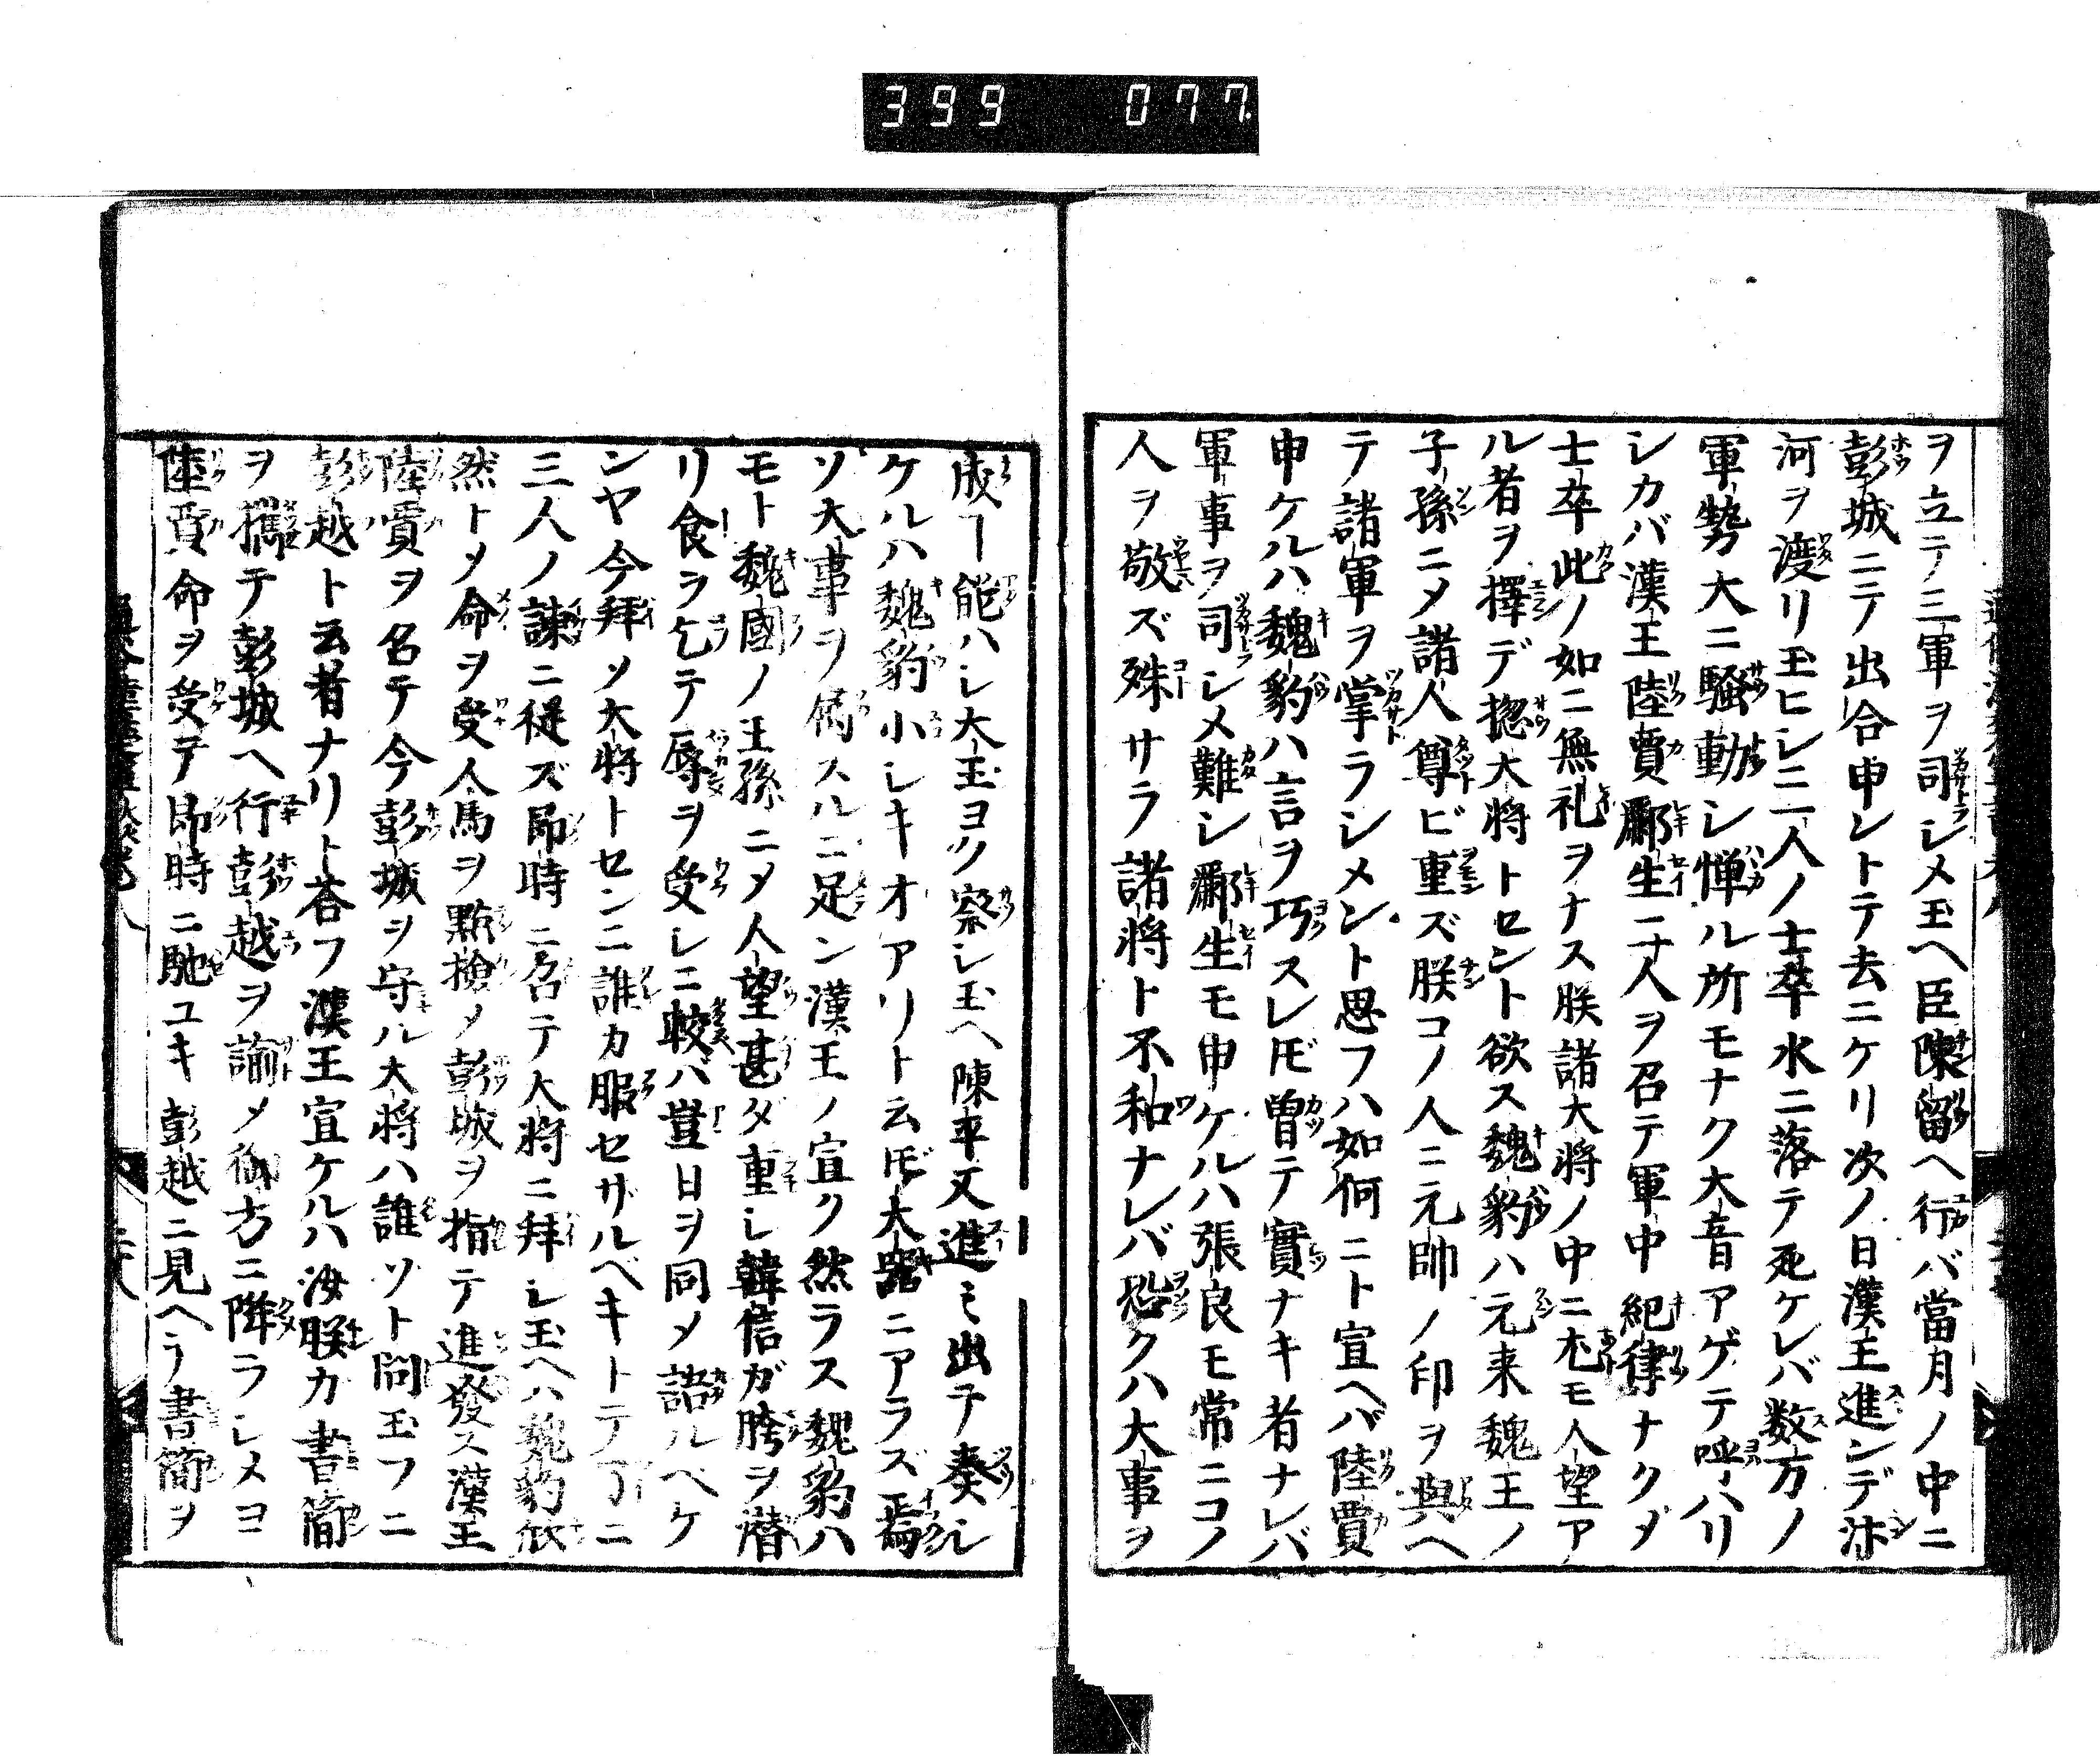 399 077
ヲ立テノ三軍ヲ司レメ玉ヘ臣陳留ヘ行バ當月ノ中ニ
彭城ニテノ出合申レトテ去ニケリ次ノ日漢王進ンデ汴
河ヲ渡リ玉ヒレニ人ノ士卒水ニ落テ死ケレバ数万ノ
軍勢大ニ騒動レ憚ル所モナク大音アゲテ呼ハリ
レカバ漢王陸賈酈生二十人ヲ召テ軍中紀律ナクメ
士卒此ノ如ニ無礼ヲナス朕諸大将ノ中ニ尤モ人望ア
ル者ヲ擇デ揔大将トセント欲ス魏豹ハ元来魏王ノ
子孫ニメ諸人尊ビ重ズ朕コノ人ニ元帥ノ印ヲ與ヘ
テ諸軍ヲ掌ラシメント思フハ如何ニト宣ヘバ陸賈
申ケルハ魏豹ハ言ヲ巧スレ𪜈曽テ實ナキ者ナレバ
軍事ヲ司レメ難レ酈生モ申ケルハ張良モ常ニコノ
人ヲ敬ズ殊サラ諸将ト不和ナレバ恐クハ大事ヲ
成ヿ能ハレ大王ヨク察レ玉ヘ陳平又進ミ出テ奏レ
ケルハ魏豹小レキオアリト云𪜈大器ニアラズ焉
ソ大事ヲ属スルニ足ン漢王ノ宣ク然ラス魏豹ハ
モト魏國ノ王孫ニメ人望甚ダ重レ韓信ガ胯ヲ潜
リ食ヲ乞テ辱ヲ受レニ較ハ豈日ヲ同メ語ルベケ
ンヤ今拜ソ大将トセンニ誰カ服セサルベキトテ丁ニ
三人ノ諌ニ從ズ即時ニ召テ大将ニ拜レ玉ヘハ魏豹欣
然トメ命ヲ受人馬ヲ點検メ彭城ヲ指テ進發ス漢王
陸賈ヲ名テ今彭城ヲ守ル大将ハ誰ソト問玉フニ
彭越ト云者ナリト荅フ漢王宣ケルハ汝朕カ書簡
ヲ擕テ彭城ヘ行彭越ヲ諭メ御方ニ降ラレメヨ
陸賈命ヲ受テ即時ニ馳ユキ彭越ニ見ヘテ書簡ヲ